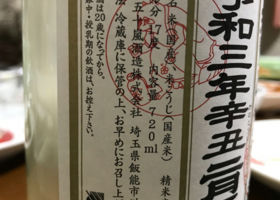 令和三年辛丑二月
名 米(国産)、米こうじ(国産米) 精米
分 17度 内容量 720ml
五十嵐酒造株式会社 埼玉県飯能市
法 冷蔵庫に保管の上、お早めにお召し上
酒は20歳になってから。
中・授乳期の飲酒は、お控え下さい。